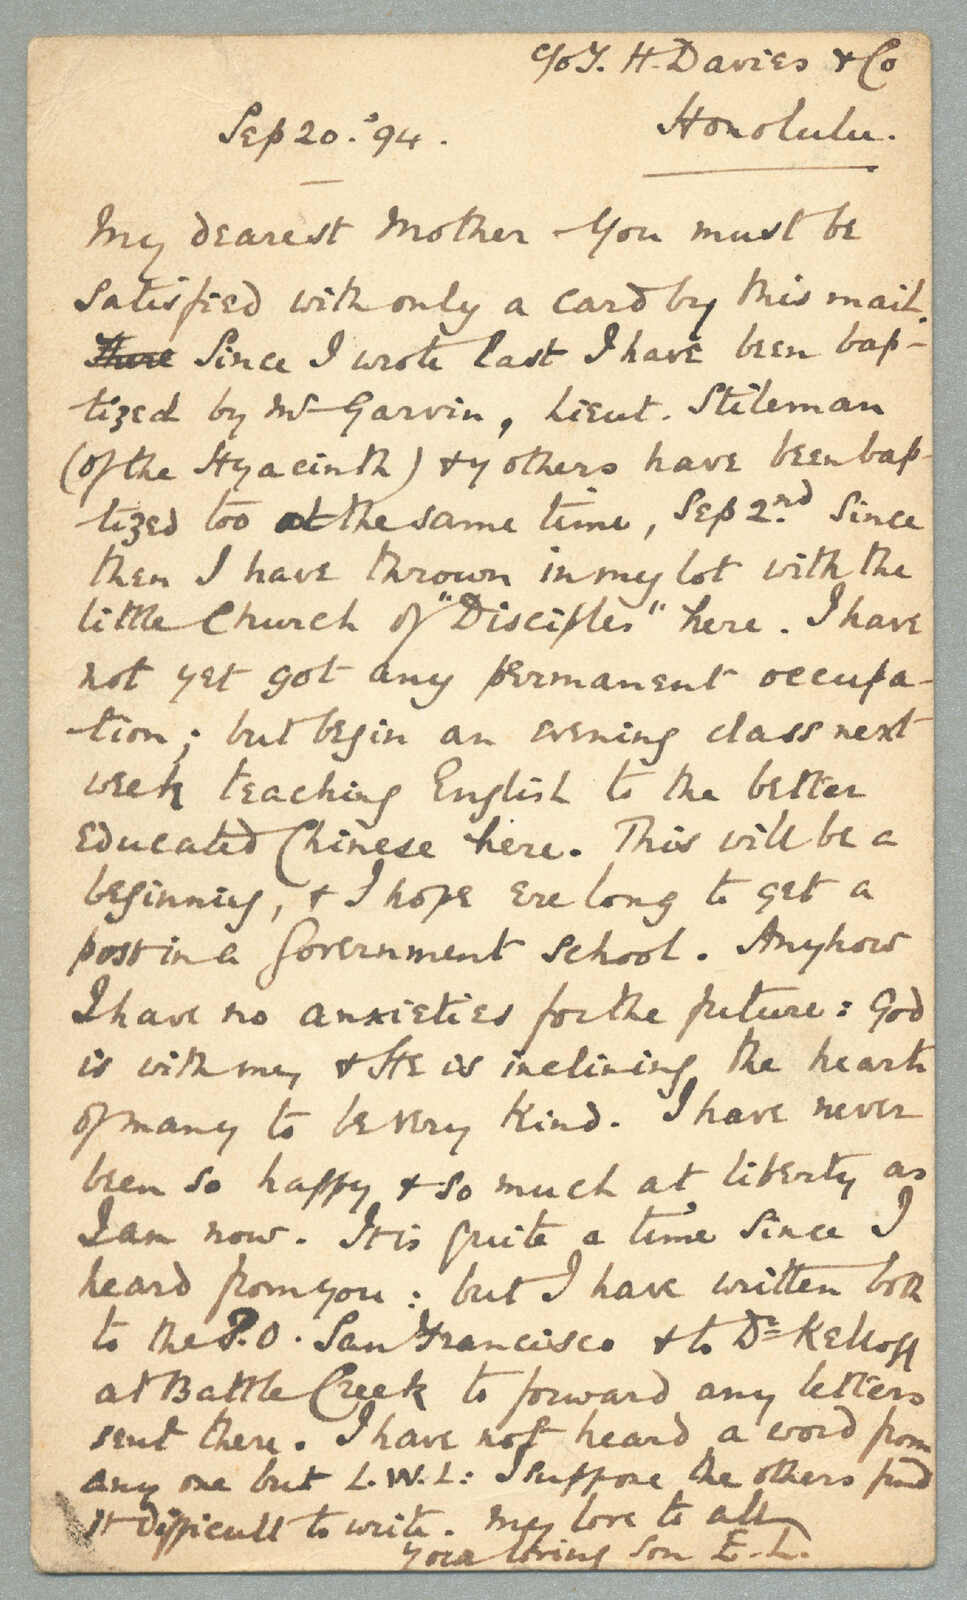 c/o T. H. Davies & Co
Sep 20. '94. Honolulu.
My dearest Mother You must be
satisfied with only a card by this mail.
There Since I wrote last I have been bap-
tized by Mr Garvin, Lieut. Stileman
(of the Hyacinth) & 7 others have been bap-
tized too at the same time, Sep 2nd. Since
then I have thrown in my lot with the
little Church of "Disciples" here. I have
not yet got any permanent occupa-
tion; but begin an evening class next
week teaching English to the better
educated Chinese here. This will be a
beginning, & I hope ere long to get a
post in a Government school. Anyhow
I have no anxieties for the future: God
is with me, & He is inclining the hearts
of many to be very kind. I have never
been so happy & so much at liberty as
I am now. It is quite a time since I
heard from you: but I have written both
to the P.O. San Francisco & to Dr Kellogg
at Battle Creek to forward any letters
sent there. I have not heard a word from
any one but L.W.L: I suppose the others find
it difficult to write. My love to all
your loving son E.L.